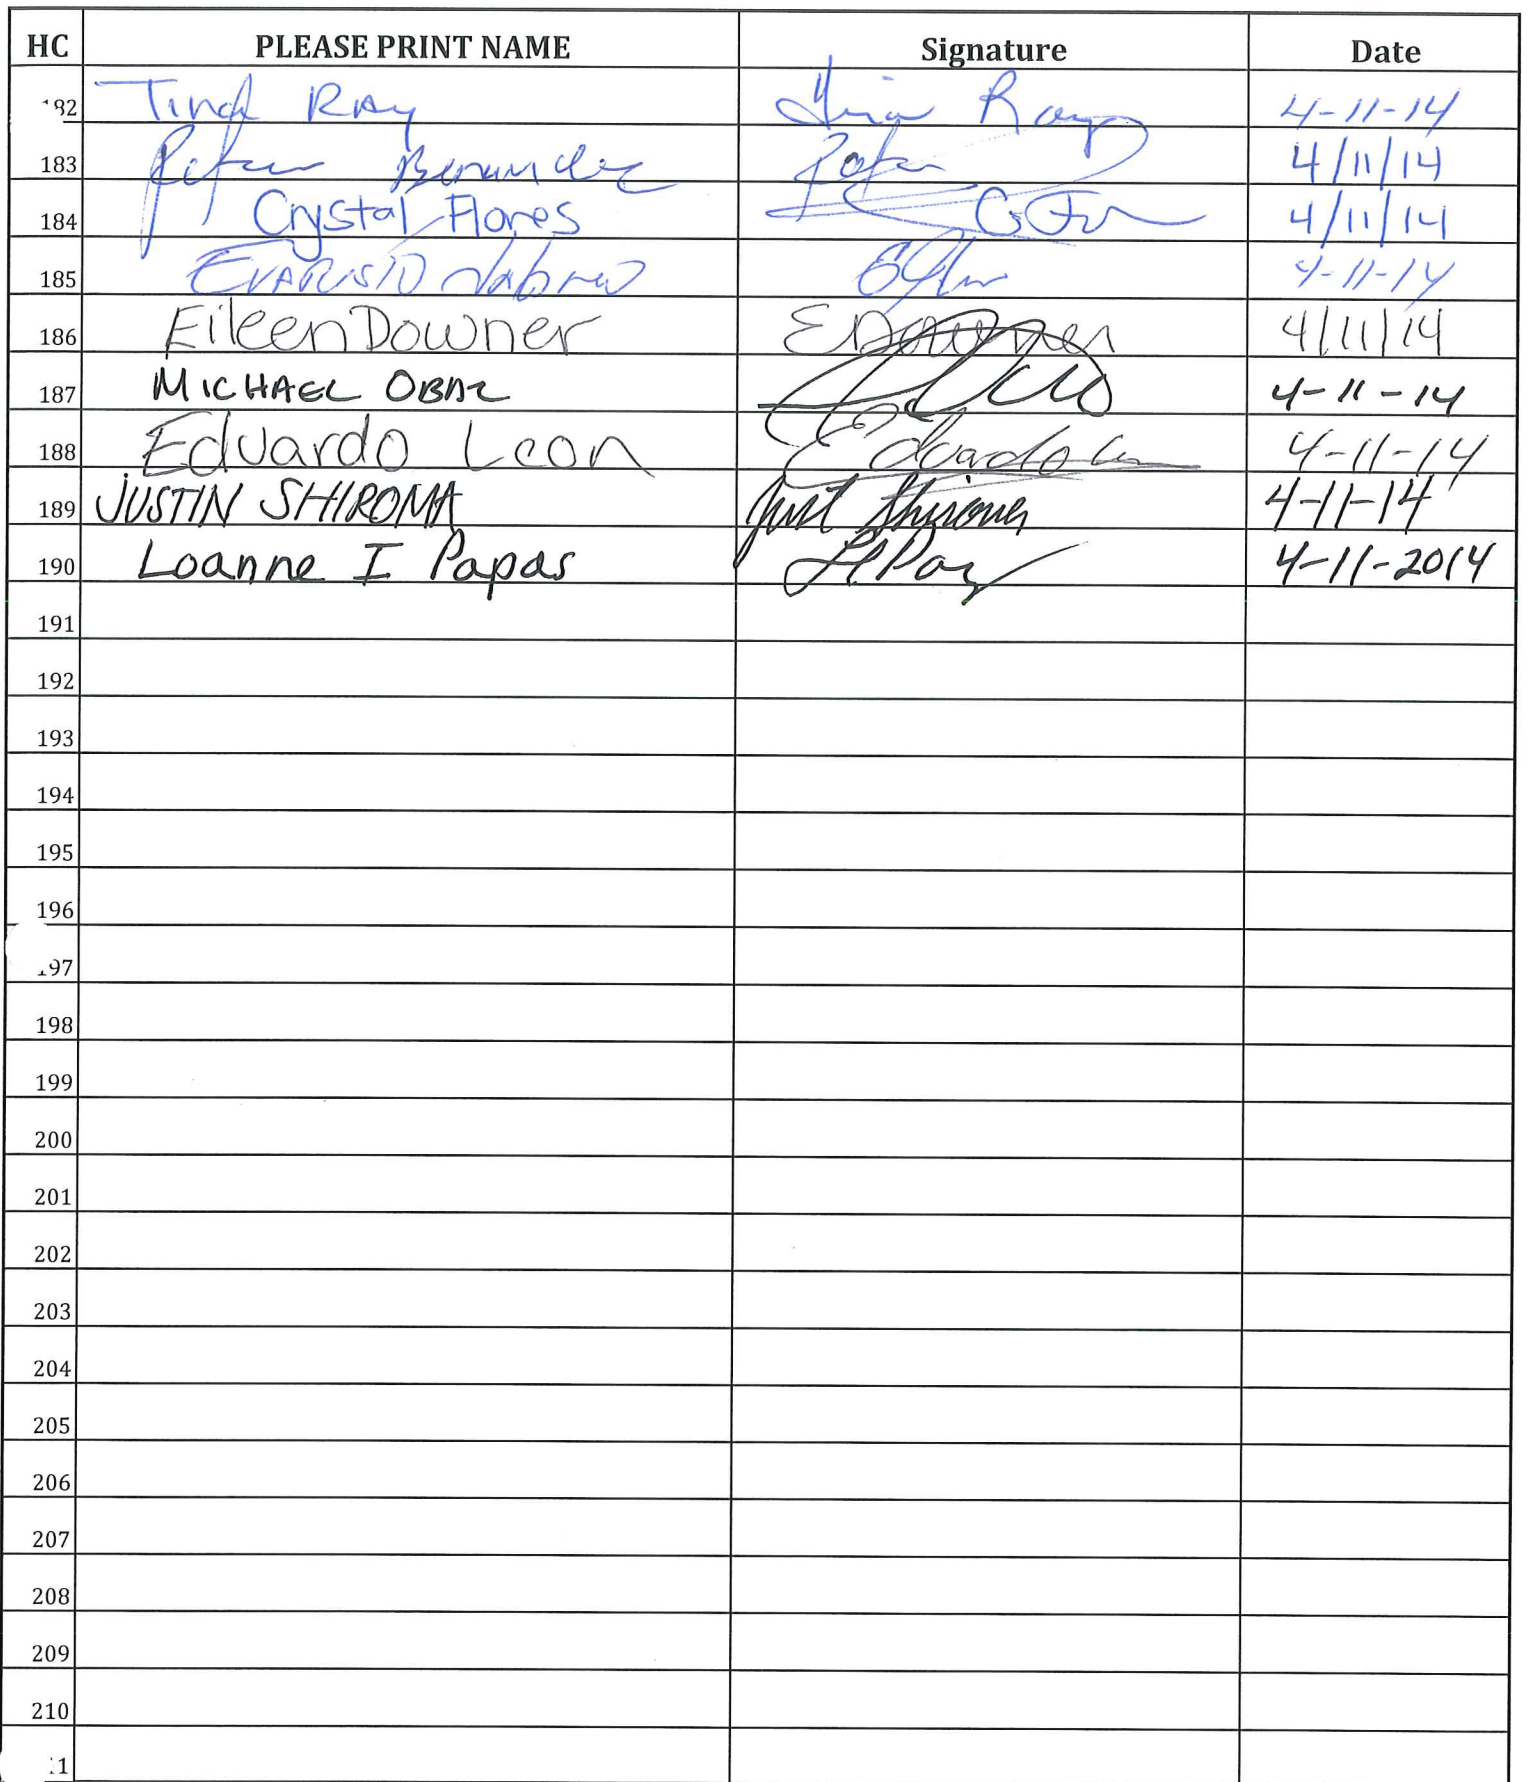 HC PLEASE PRINT NAME Signature Date
182 Tina Ray Tina Ray 4-11-14
183 4/11/14
184 Crystal Flores 4/11/14
185 EVARISTO 4-11-14
186 Eileen Downer EDowner 4/11/14
187 MICHAEL 4-11-14
188 Eduardo Leon Eduardo 4-11-14
189 JUSTIN SHIROMA Just Shiroma 4-11-14
190 Loanne I Papas 4-11-2014
191
192
193
194
195
196
197
198
199
200
201
202
203
204
205
206
207
208
209
210